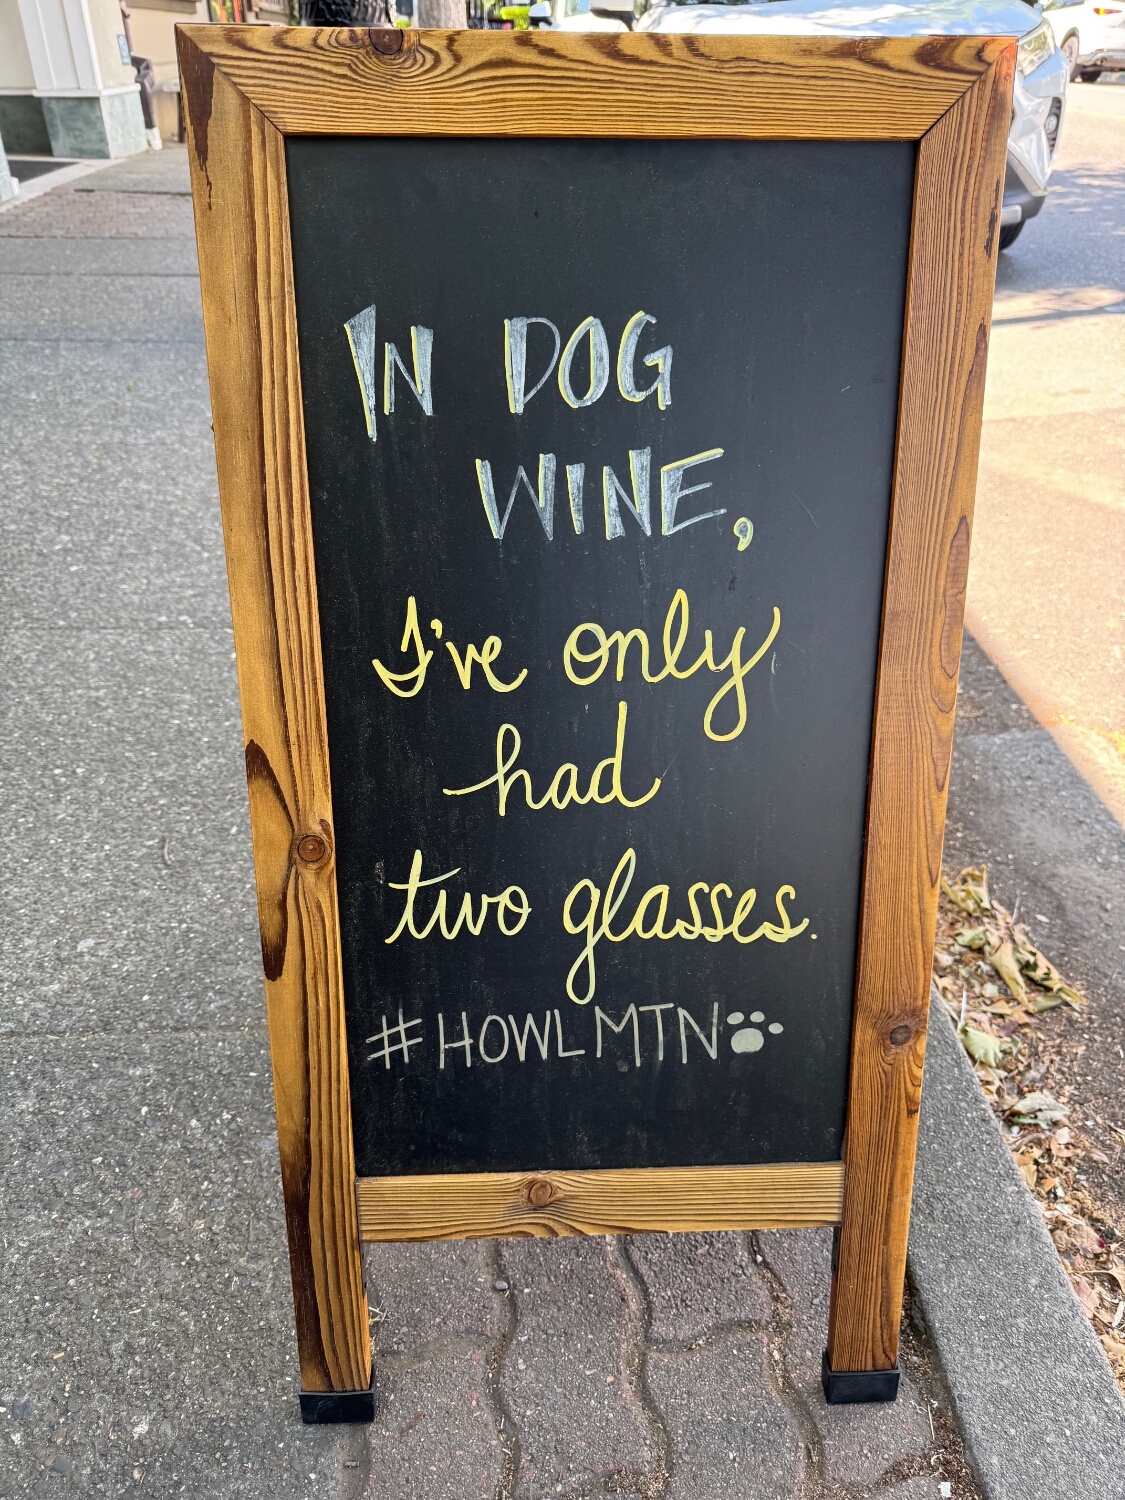 IN DOG
WINE,
I've only
had
two glasses.
#HOWLMTN